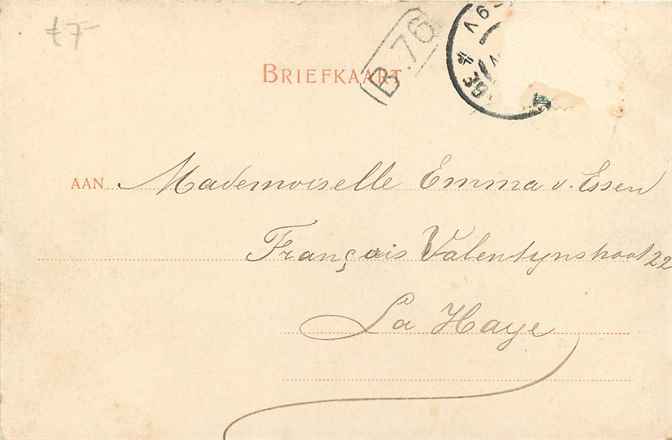 £7-
B.76
BRIEFKAART
AAN Mademoiselle Emma v. Essen
François Valentijnstraat 22
La Haye